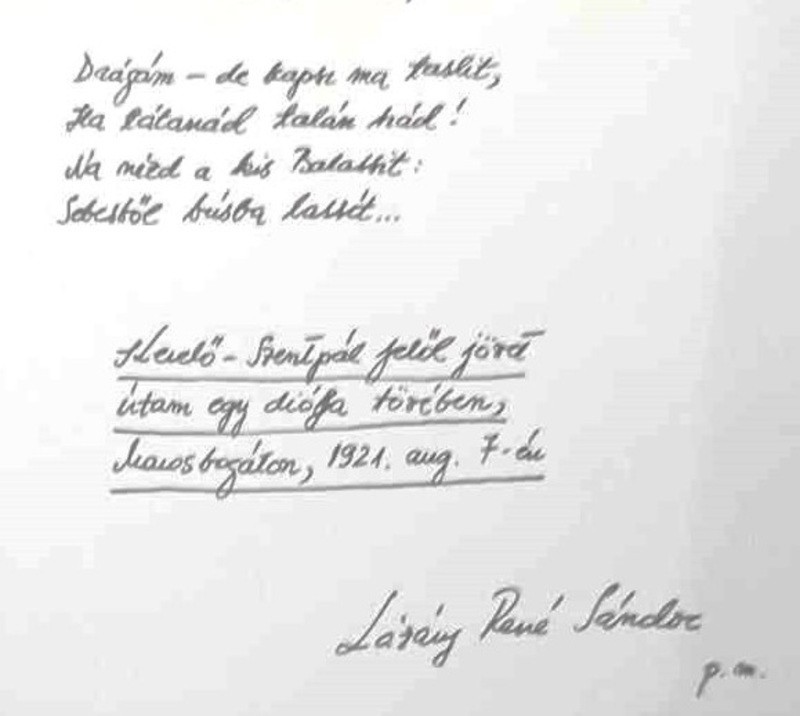 Drágám – de kapsz ma taslit,
Ha látanád talán hád!
Na nézd a kis Balassit:
Sebestől búsba lassét...
Kerelő-Szentpál felől jövet
útam egy diófa tövében,
Marosbogáton, 1921. aug. 7-én
René Sándor
p.m.